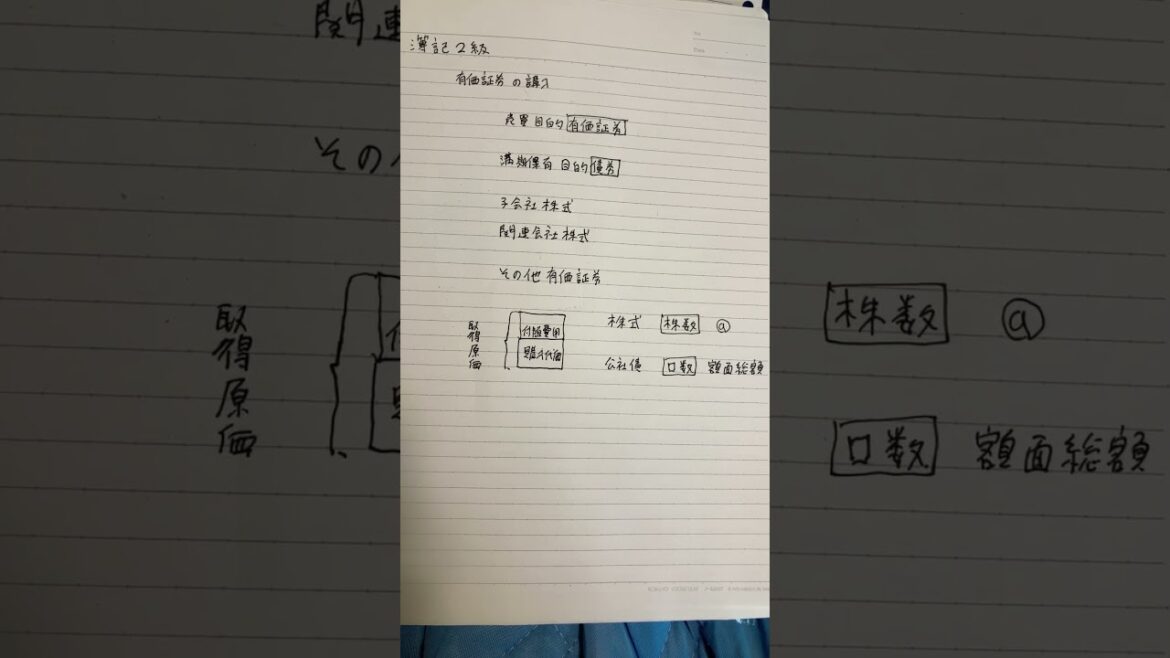 簿記2級
有価証券の購入
売買目的有価証券
満期保有目的債券
子会社株式
関連会社株式
その他有価証券
取得原価
付随費用
購入代価
株式 株数 @
公社債 口数 額面総額